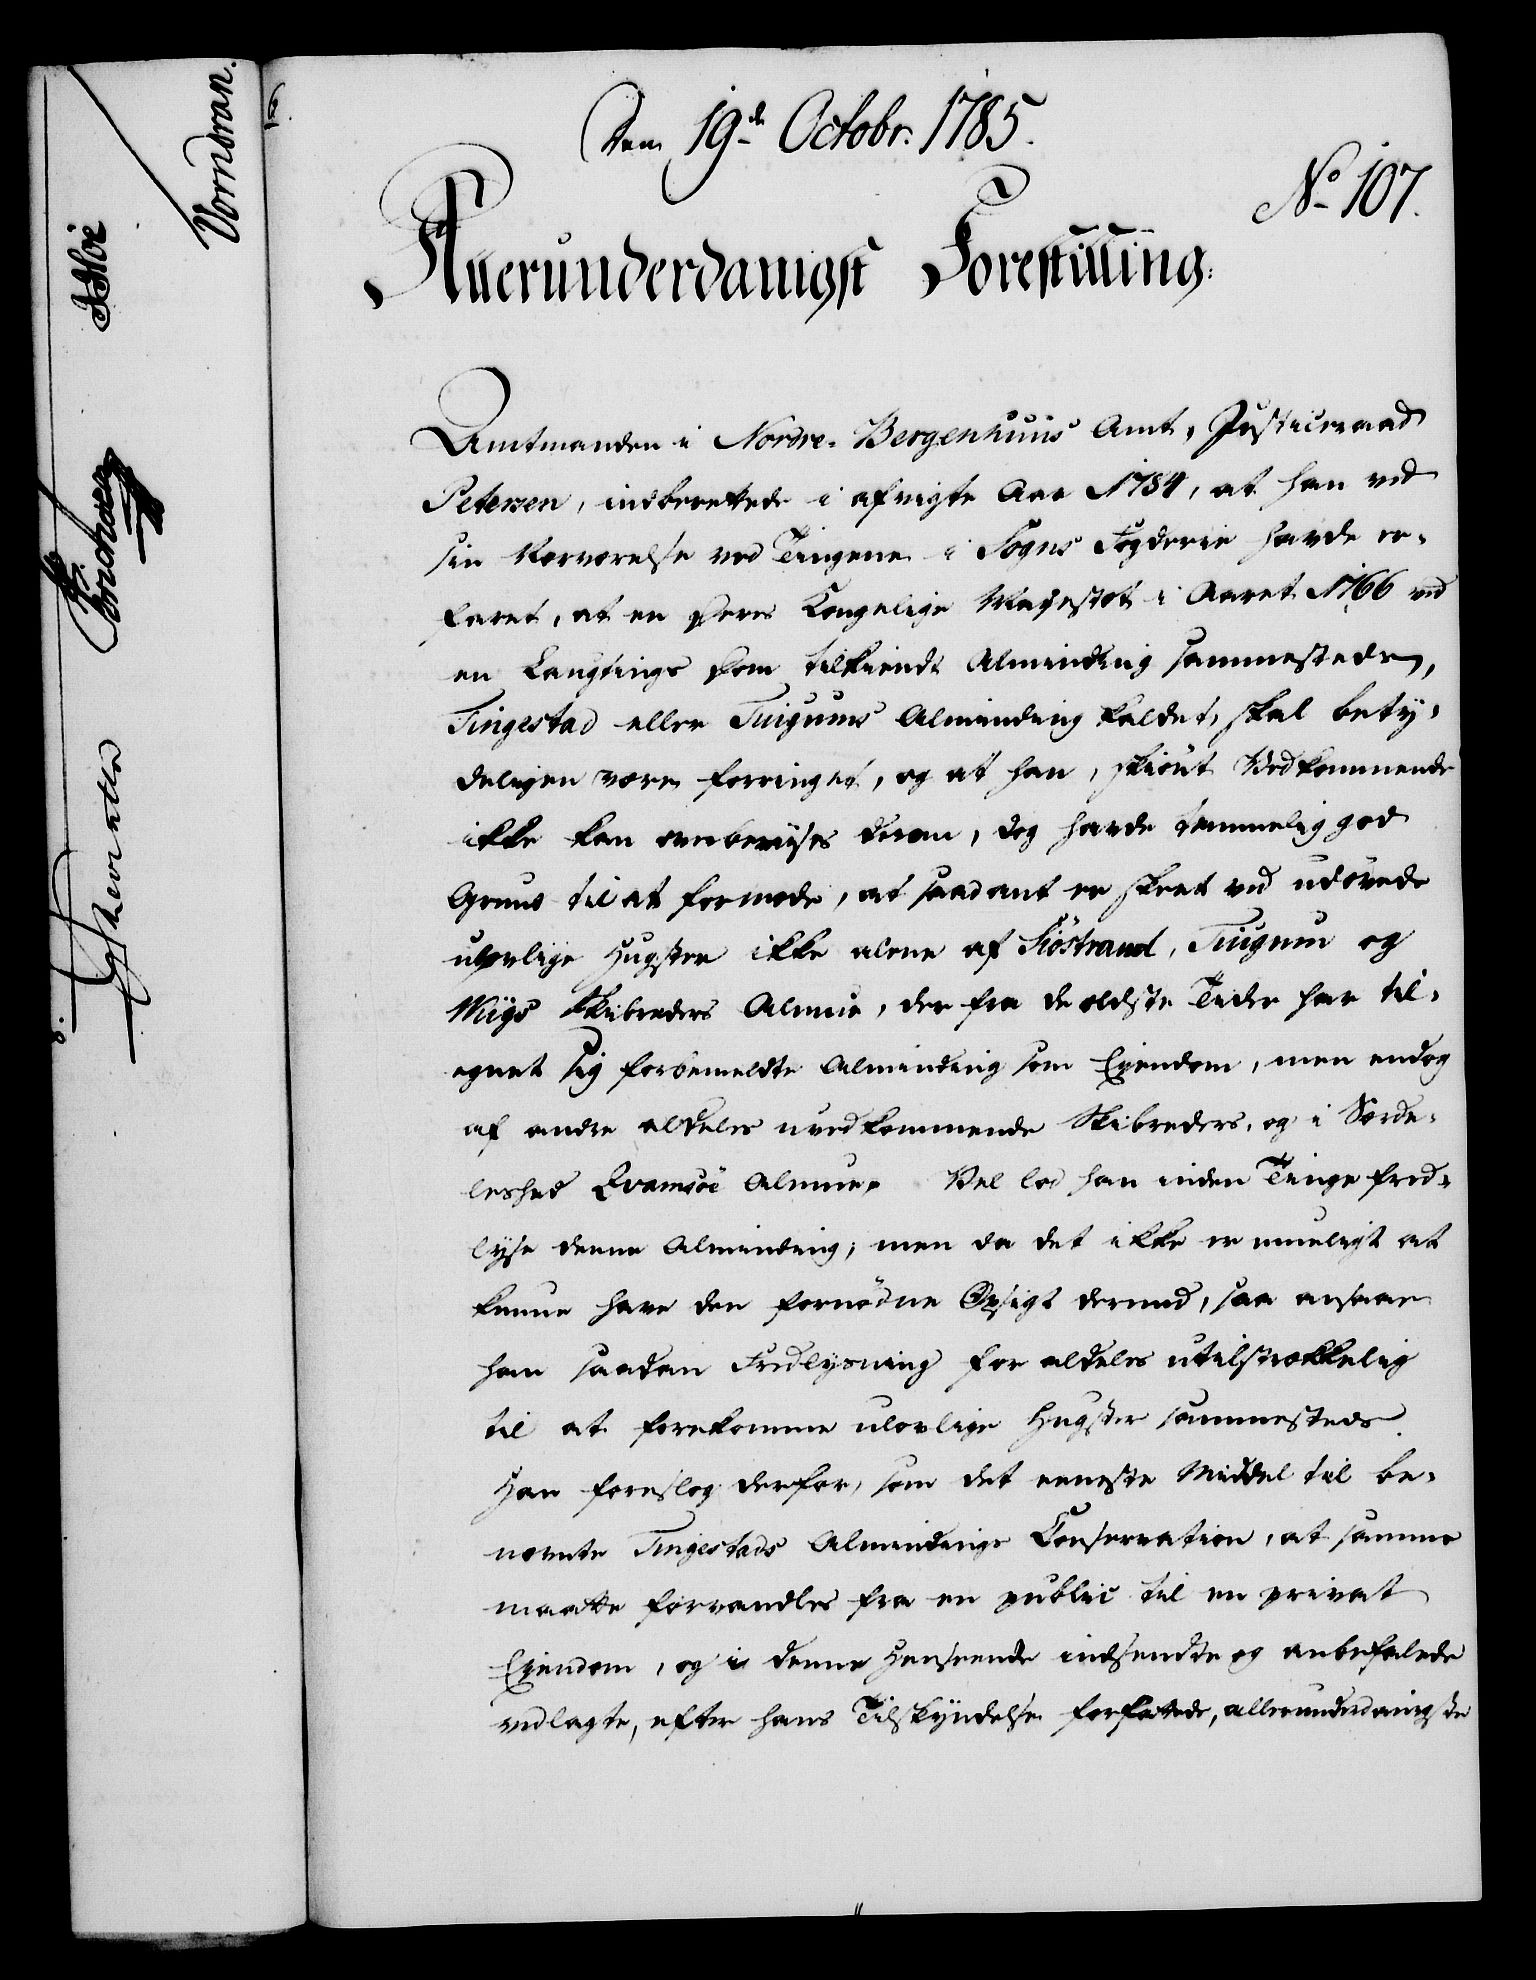 Den 19de Octobr. 1785.
No 107.
Allerunderdanigst Forestilling.
Amtmanden i Nordre-Bergenhuus Amt, Justiceraad
Petersen, indberettede i afvigte Aar 1784, at han ved
sin Nærværelse ved Tingene i Sogns Fogderie havde er-
faret, at en Deres Kongelige Majestæt i Aaret 1766 ved
en Laugtings Dom tilkiendt Alminding sammesteds,
Tingestad eller Tuigums Alminding kaldet, skal bety-
deligen være forringet, og at han, skiönt Vedkommende
ikke kan overbeviises derom, dog havde temmelig god
Grund til at formode, at saadant er skeet ved udövede
ulovlige Hugster ikke alene af Siöstrand, Tuigum og
Wiigs Skibreders Almue, der fra de ældste Tider har til-
egnet sig forbemeldte Alminding som Eyendom, men endog
af andre aldeles uvedkommende Skibreders, og i Særde-
leshed Qvamsöe Almue. Vel lod han inden Tinge fred-
lyse denne Alminding, men da det ikke er mueligt at
kunne have den fornödne Opsigt dermed, saa ansaae
han saadan Fredlysning for aldeles utilstrækkelig
til at forekomme ulovlige Hugster sammesteds.
Han foreslog derfor, som det eeneste Middel til be-
nævnte Tingestads Almindings Conservation, at samme
maatte forvandles fra en public til en privat
Eyendom, og i denne Henseende indsendte og anbefalede
vedlagte, efter hans Tilskyndelse forfattede, allerunderdanigste
Vorndran.